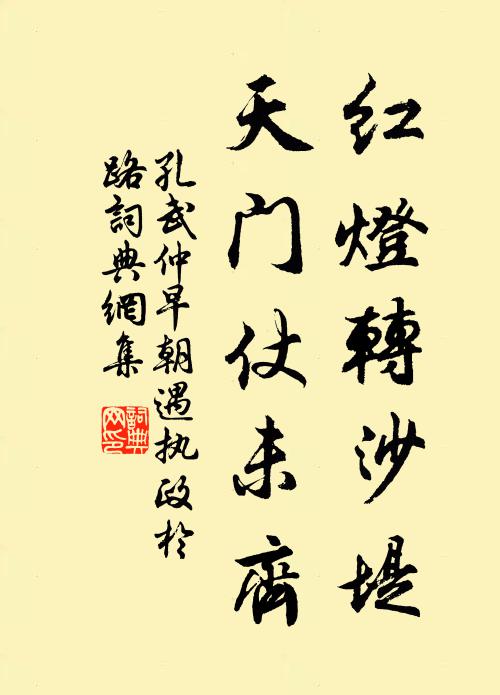 红燈轉沙堤
天門仗未齊
孔武仲早朝遇执政於
路詞典網集
詞典
网印